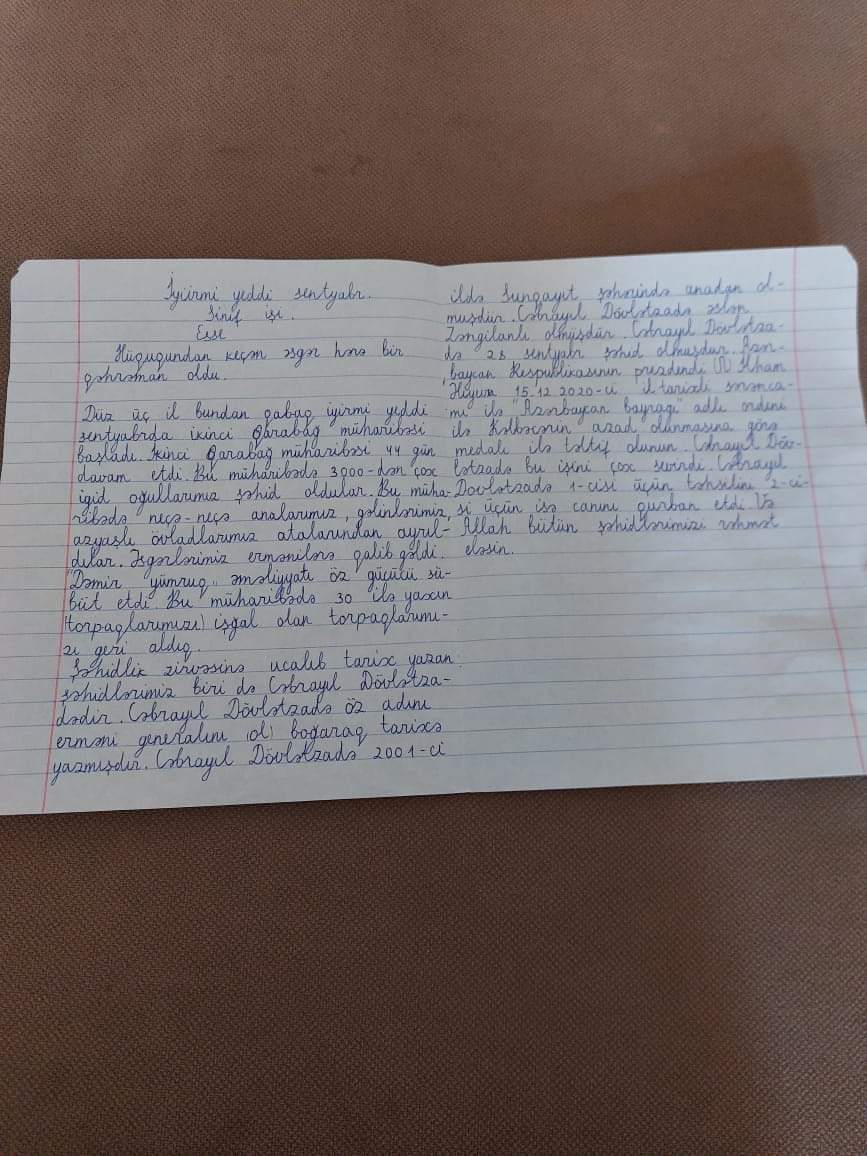 İyirmi yeddi sentyabr.
Sinif işi.
Esse
Hüququndan keçən əsgər hənə bir
qəhrəman oldu.
Düz üç il bundan qabaq iyirmi yeddi
sentyabrda ikinci Qarabağ müharibəsi
başladı. İkinci Qarabağ müharibəsi 44 gün
davam etdi. Bu müharibədə 3000-dən çox
igid oğullarımız şəhid oldular. Bu müha-
ribədə neçə-neçə analarımız, gəlinlərimiz,
azyaşlı övladlarımız atalarından ayrıl-
dılar. Əsgərlərimiz ermənilərə qalib gəldi.
"Dəmir yumruq" əməliyyatı öz gücücü sü-
but etdi. Bu müharibədə 30 ilə yaxın
(torpaqlarımızı) işğal olan torpaqlarımı-
zı geri aldıq.
Şəhidlik zirvəsinə ucalıb tarix yazan
şəhidlərimiz biri də Cəbrayıl Dövlətza-
dədir. Cəbrayıl Dövlətzadə öz adını
erməni generalını (ol) boğaraq tarixə
yazmışdır. Cəbrayıl Dövlətzadə 2001-ci
ildə Sumqayıt şəhərində anadan ol-
muşdur. Cəbrayıl Dövlətzadə əslən
Zəngilanlı olmuşdur. Cəbrayıl Dövlətza-
də 28 sentyabr şəhid olmuşdur. Azər-
baycan Respublikasının prezdendi İlham
Əliyevin 15.12.2020-ci il tarixli sərənca-
mı ilə "Azərbaycan bayrağı" adlı ordeni
ilə Kəlbəcərin azad olunmasına görə
medalı ilə təltif olunun. Cəbrayıl Döv-
lətzadə bu işini çox sevirdi. Cəbrayıl
Dövlətzadə 1-cisi üçün təhsilini 2-ci-
si üçün isə canını qurban etdi. Və
Allah bütün şəhidlərimizi rəhmət
eləsin.